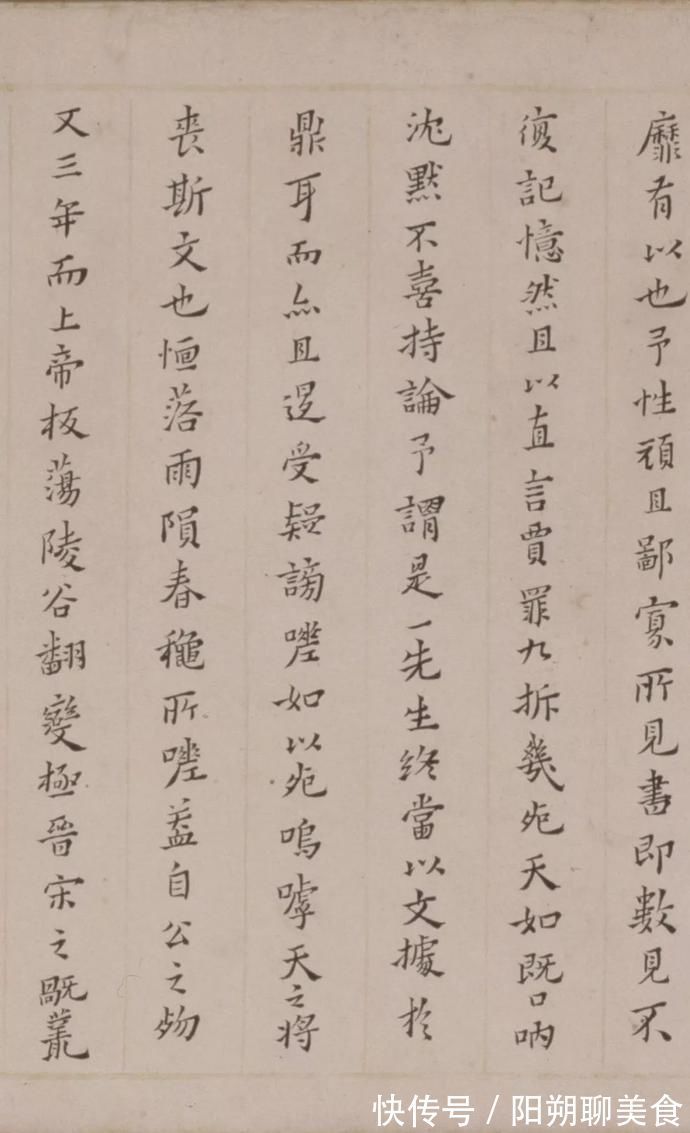 靡有以也予性頑且鄙寡所見書即數見不
復記憶然且以直言賈罪九拆幾死天如既口吶
沈默不喜持論予謂是一先生終當以文據於
鼎耳而亦且遝受疑謗嚦如以死嗚嘑天之將
喪斯文也恒落雨隕春所蓋自公之歾
又三年而上帝板蕩陵谷翻變極晉宋之叢
快传号 / 阳朔聊美食